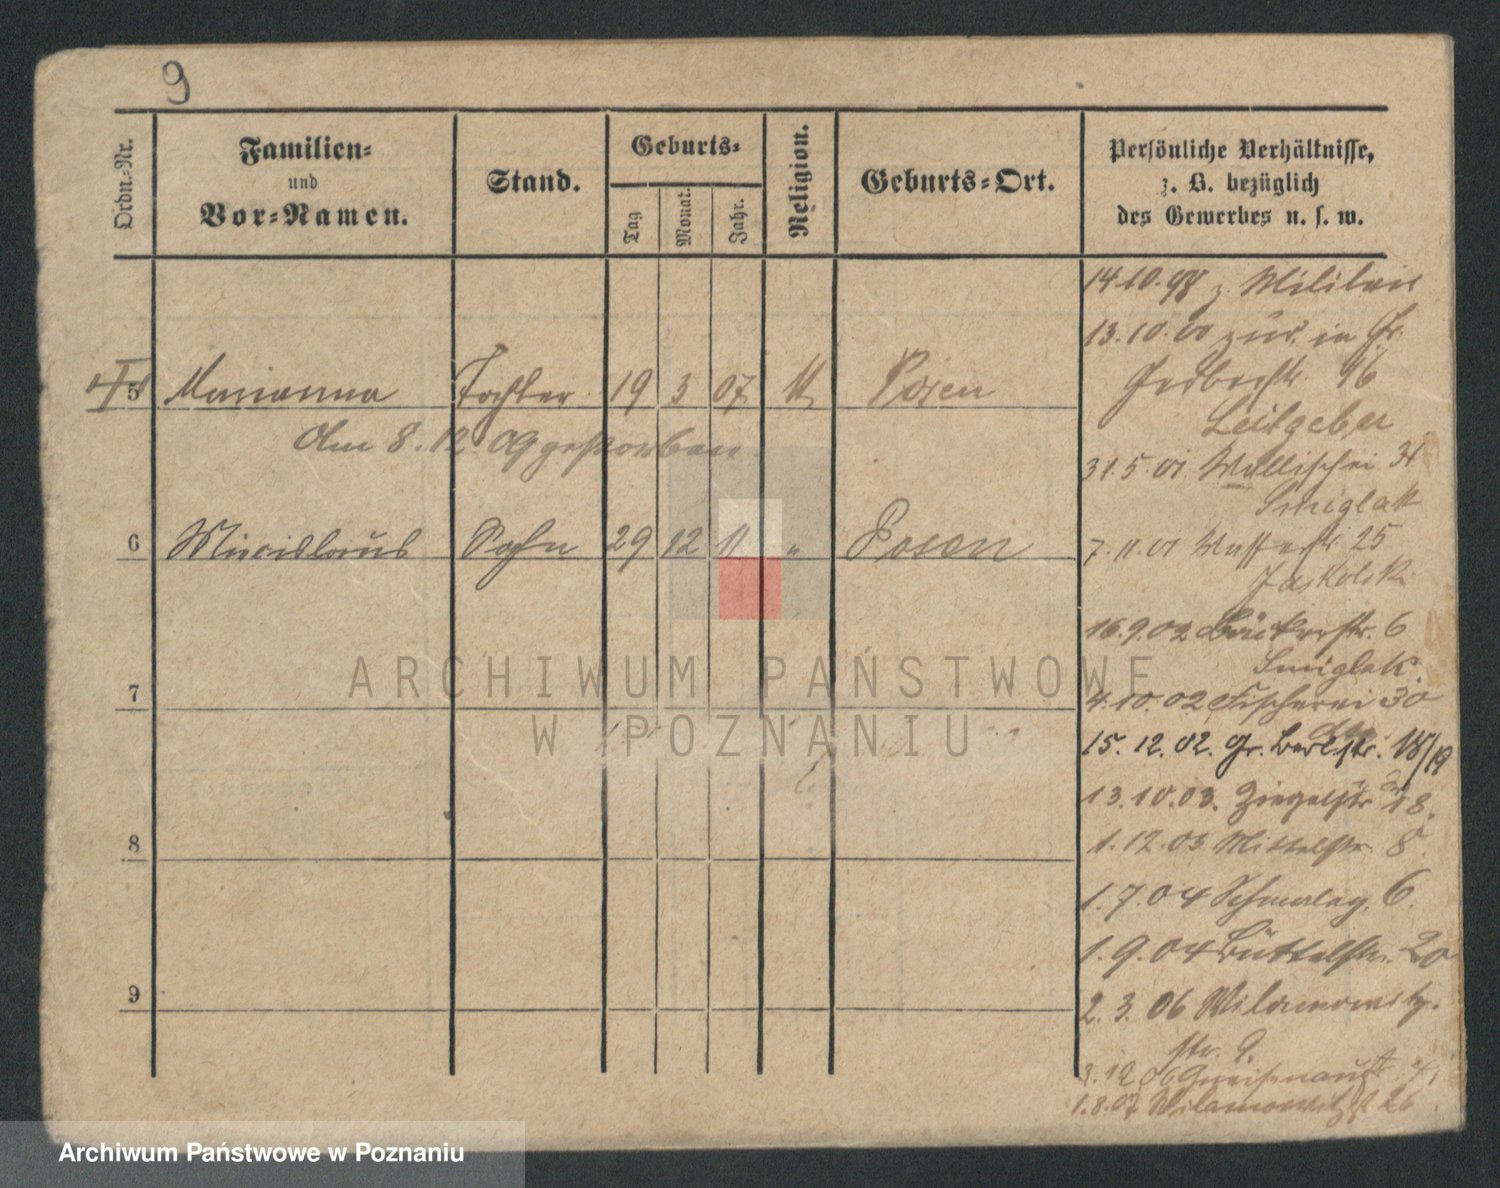 9
Ordn.-Nr.
Familien-
und
Vor-Namen.
Stand.
Geburts-
Tag
Monat.
Jahr.
Religion.
Geburts-Ort.
Persönliche Verhältnisse,
z. B. bezüglich
des Gewerbes u. s. w.
14.10.98 z. Militair
13.10.00 zur. in Gr.
Gerberstr. 16
Leitgeber
5 Marianna Tochter 19 3 07 Posen
Am 8.12.09 gestorben.
31.5.01 Wallischei 31
Smiglak
7.11.01 25
Jaskolski
6 Miecislaus Sohn 29 12 11 " Posen
16.9.02 Bäckerstr. 6
Smiglak.
7
4.10.02 Fischerei 30
15.12.02. Gr. Berlstr. 18/19
13.10.03. Ziegelstr. 18.
8
1.12.03 Mittelstr. 8.
1.7.04 Schmalag. 6.
1.9.04 Büttelstr. 20
9
2.3.06 Wilamowitz-
str. 9.
3.12.06 Gneisenaustr.
1.8.07 Wilamowitzstr. 26.
ARCHIWUM PAŃSTWOWE
W POZNANIU
Archiwum Państwowe w Poznaniu